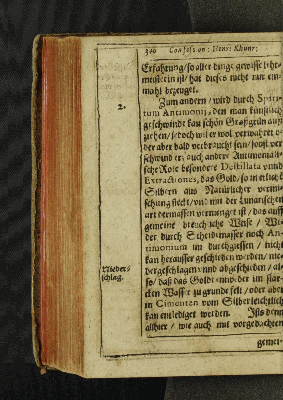 340 Confession: Henr: Khunr:
Erfahrung/so aller dinge gewisse lehr-
meisterin ist/ hat dieses nicht nur ein-
mahl bezeuget.
2.
Zum andern / wird durch Spiri-
tum Antimonii, den man künstlich
geschwindt kan schön Graßgrün auß
ziehen/ jedoch wil er wol verwahret o-
der aber bald verbraucht sein/ sonst ver-
schwind er; auch andere Antimoniali-
sche Rote besondere Destillata vnnd
Extractiones, das Gold/ so in etliche
Silbern aus Natürlicher vermi-
schung steckt/ vnd mit der Lunarischen
art dermassen vermenget ist / das auff
gemeine breuchliche Weise / We-
der durch Scheidewasser noch An-
timonium im durchgiessen / nicht
kan heraussergeschieden werden/ nie-
Nieder-
schlag.
dergeschlagen vnnd abgeschieden / al-
so/ daß das Goldt in der star-
cken Wasser zu grunde felt / oder aber
in Cimenten vom Silber leichtlich
kan entlediget werden. Ists denn
allhier / wie auch mit vorgedachten
gemei-